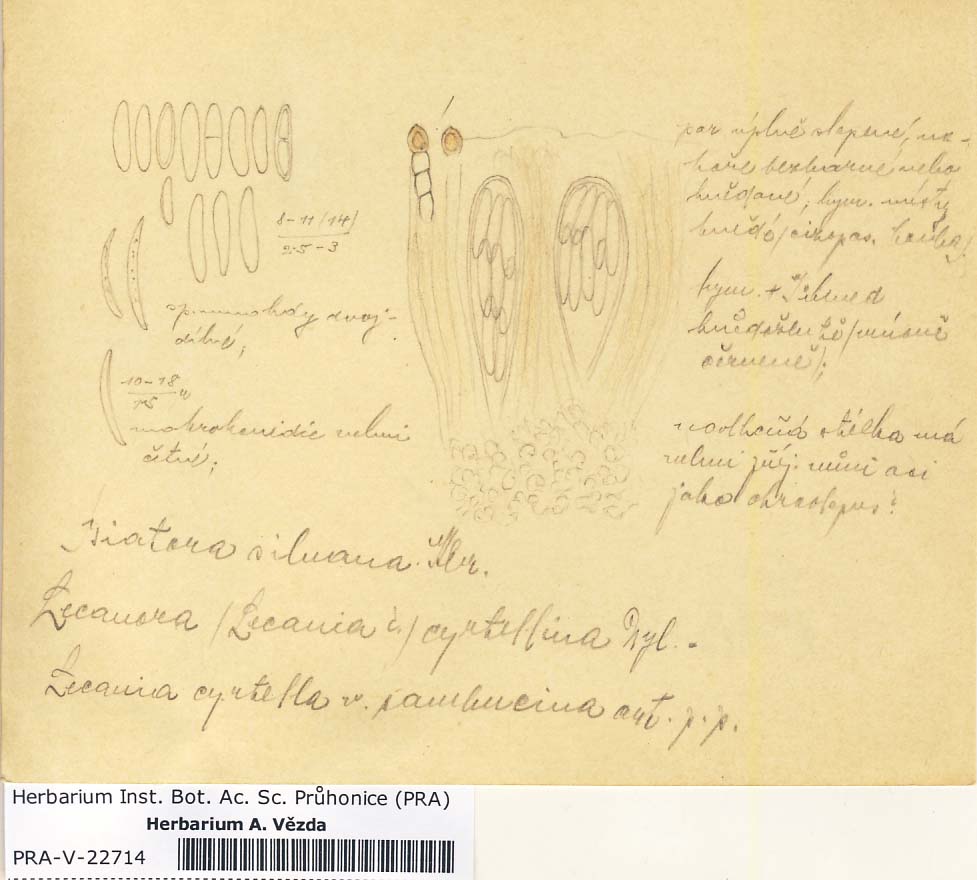 8-11 (14)
2.5-3
sp. mnohdy dvoj-
dílné;
10-18 µ
1.5
makrokonidie velmi
četné;
par úplně slepené, na-
hoře bezbarvé nebo
hnědavé; hym. místy
hnědé / cizopas. houba /
hym. +
hnědožlutě /
červeně /;
navlhčená stélka má
velmi příj. vůni asi
jako chroolepus!
Biatora silvana Kbr.
Lecanora (Lecania č.) cyrtellina Nyl. -
Lecania cyrtella v. sambucina aut. p. p.
Herbarium Inst. Bot. Ac. Sc. Průhonice (PRA)
Herbarium A. Vězda
PRA-V-22714